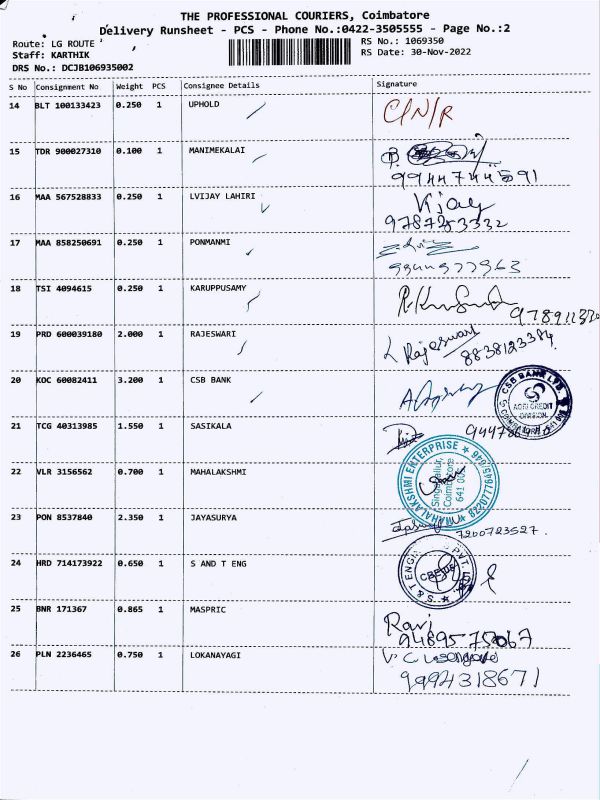 THE PROFESSIONAL COURIERS, Coimbatore
Delivery Runsheet - PCS - Phone No.:0422-3505555 - Page No.:2
Route: LG ROUTE
RS No.: 1069350
Staff: KARTHIK
RS Date: 30-Nov-2022
DRS No.: DCJB106935002
S No Consignment No Weight PCS Consignee Details Signature
14 BLT 100133423 0.250 1 UPHOLD C/N/R
15 TDR 900027310 0.100 1 MANIMEKALAI
9944744591
16 MAA 567528833 0.250 1 LVIJAY LAHIRI Vijay
9787253332
17 MAA 858250691 0.250 1 PONMANMI
18 TSI 4094615 0.250 1 KARUPPUSAMY
19 PRD 600039180 2.000 1 RAJESWARI Rajeswari
8838123384
20 KOC 60082411 3.200 1 CSB BANK
CSB BANK LTD.
AGRI CREDIT
DIVISION
21 TCG 40313985 1.550 1 SASIKALA
22 VLR 3156562 0.700 1 MAHALAKSHMI
MAHALAKSHMI ENTERPRISE
Singanallur,
Coimbatore
641 005
23 PON 8537840 2.350 1 JAYASURYA
7200723527
24 HRD 714173922 0.650 1 S AND T ENG
25 BNR 171367 0.865 1 MASPRIC Ravi
9489575067
26 PLN 2236465 0.750 1 LOKANAYAGI
9994318671